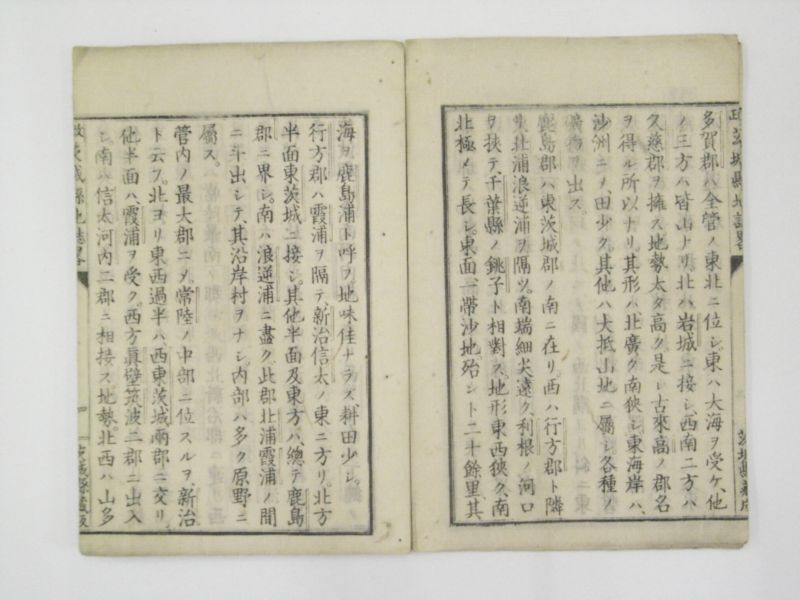 多賀郡ハ全管ノ東北ニ位シ、東ハ大海ヲ受ケ、他
ノ三方ハ皆山ナリ、北ハ岩城ニ接シ、西南二方ハ
久慈郡ヲ擁ス地勢太タ高ク、是レ古來高ノ郡名
ヲ得ル所以ナリ其形ハ北廣ク南狹シ東海岸ハ、
沙洲ニメ、田少ク、其他ハ大抵山地ニ屬シ各種ノ
礦物ヲ出ス。
鹿島郡ハ東茨城郡ノ南ニ在リ。西ハ行方郡ト隣
シ北浦浪逆浦ヲ隔ツ。南端細尖遠ク、利根ノ河口
ヲ挾テ、千葉縣ノ銚子ト相對ス、地形東西狹ク、南
北極メテ長シ、東面、一帶沙地、殆ント二十餘里、其
海ヲ鹿島浦ト呼フ地味佳ナラス、耕田少シ。
行方郡ハ霞浦ヲ隔テ、新治信太ノ東ニ方リ。北方
半面東茨城ニ接シ。其他半面及東方ハ、總テ鹿島
郡ニ界シ。南ハ浪逆浦ニ盡ク、此郡北浦霞浦ノ間
ニ斗出シテ、其沿岸村ヲナシ、内部ハ多ク原野ニ
屬ス。
管内ノ最大郡ニメ、常陸ノ中部ニ位スルヲ、新治
ト云フ。北ヨリ東西過半ハ、西東茨城兩郡ニ交リ。
他半面ハ、霞浦ヲ受ク。西方眞壁筑波二郡ニ出入
シ南ハ信太河内二郡ニ相接ス地勢。北西ハ山多
茨城縣地誌畧
茨城縣藏版